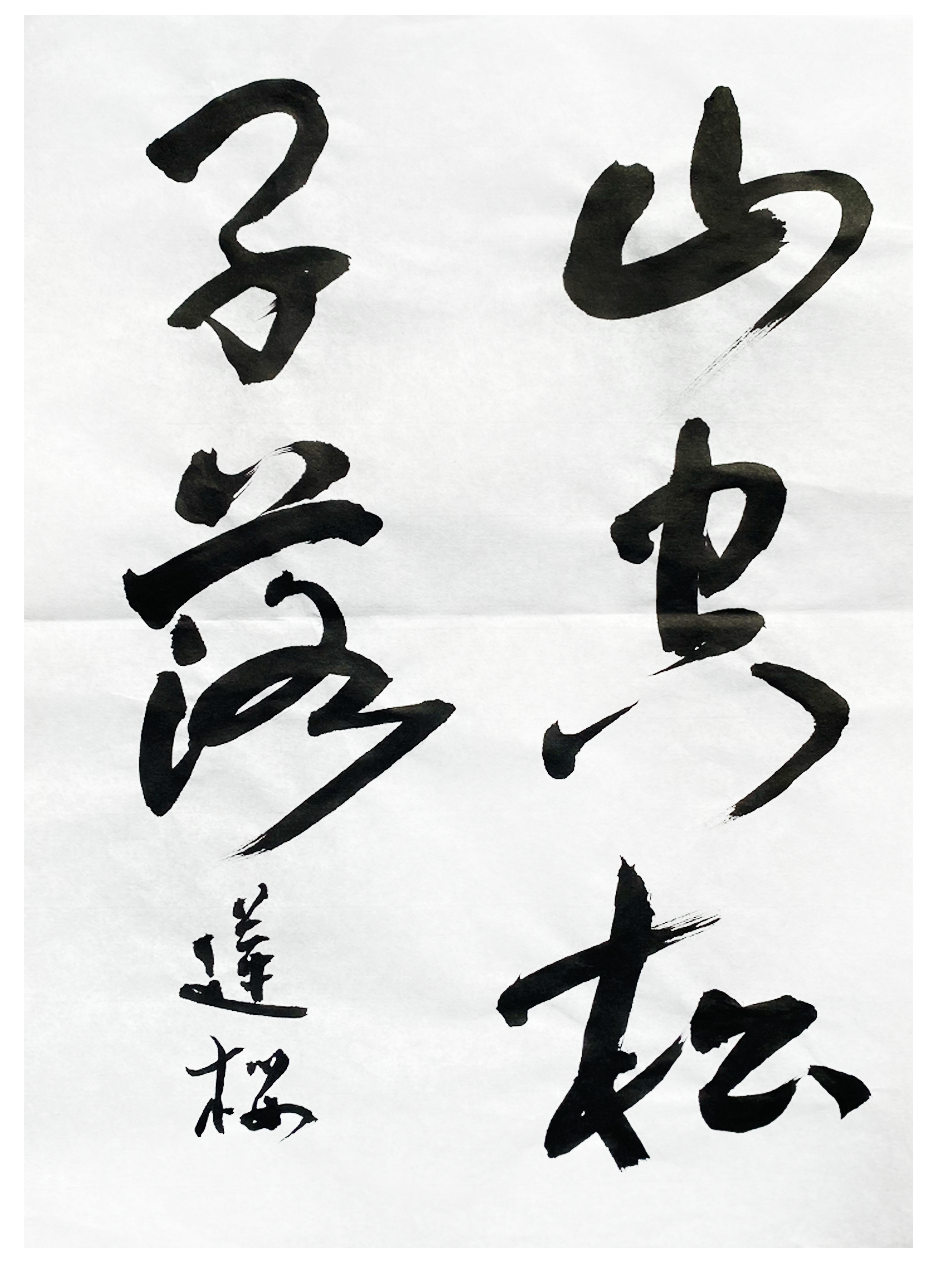 山空松
子落
蓮桜